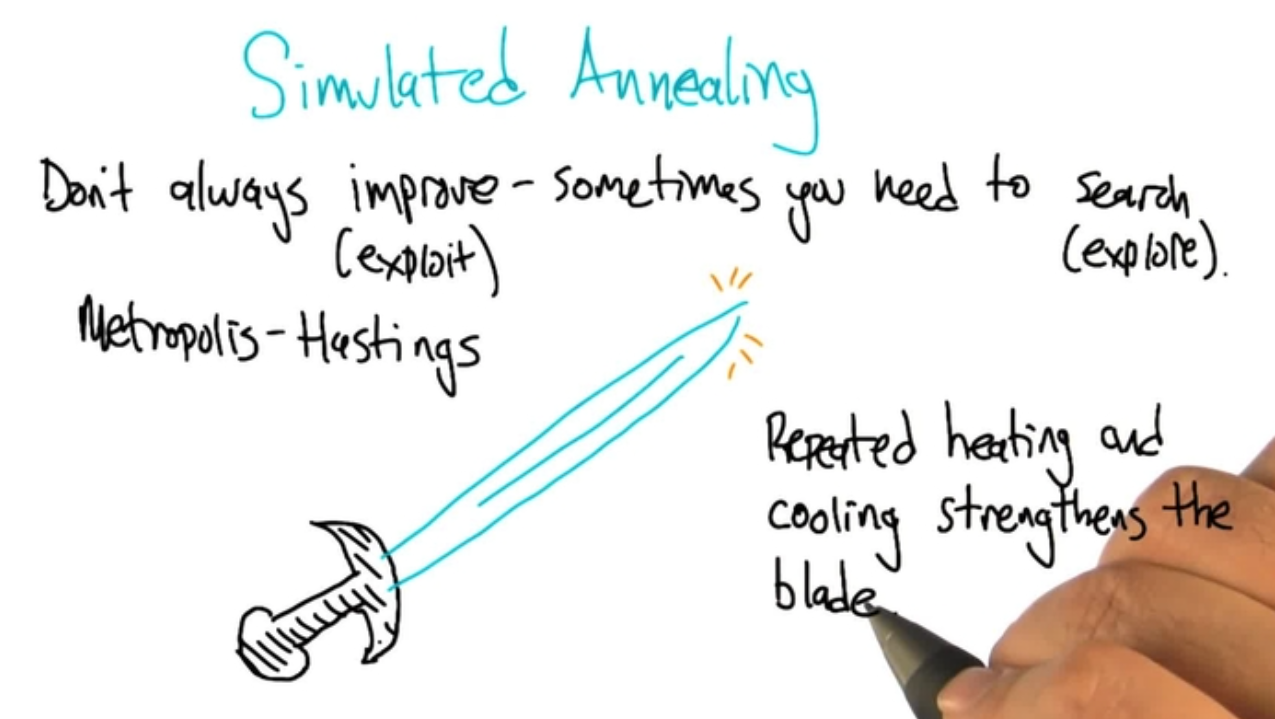 Simulated Annealing
Don't always improve - sometimes you need to search
(exploit) (explore).
Metropolis-Hastings
Repeated heating and
cooling strengthens the
blade.